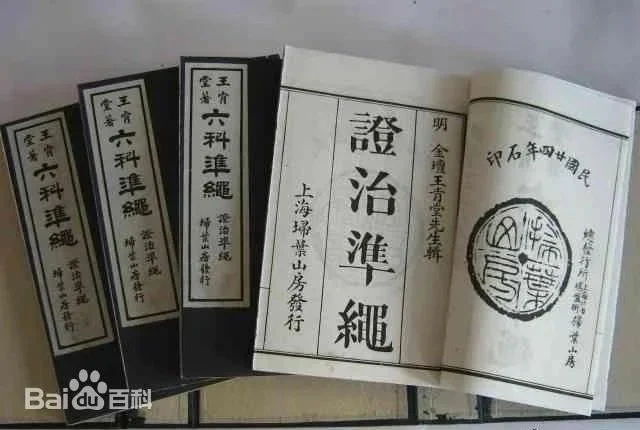 王肯堂著
六科準繩
證治準繩
掃葉山房發行
王肯堂著
六科準繩
證治準繩
掃葉山房發行
王肯堂著
六科準繩
證治準繩
掃葉山房發行
明 金壇王肯堂先生輯
證治準繩
上海掃葉山房發行
民國廿四年石印
掃葉山房
總發行所
掃葉山房
Bai百科